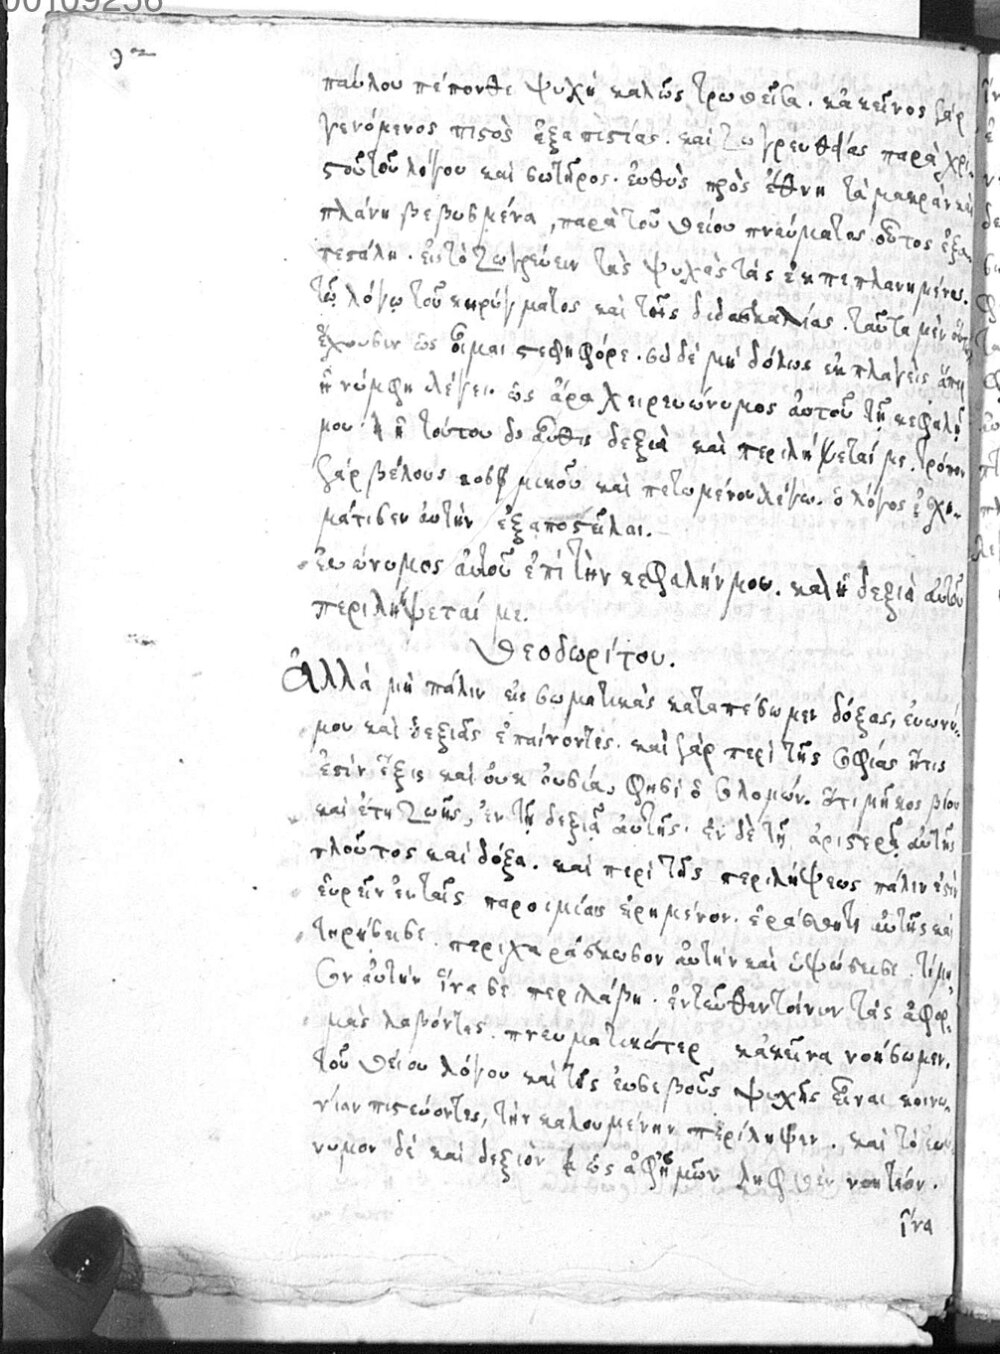 00109256
παύλου πέπονθε ψυχὴ καλῶς τρωθεῖσα. κἀκεῖνος γὰρ
γενόμενος πιστὸς ἐξ ἀπιστίας. καὶ ζωγρευθείς παρὰ χρι-
στοῦ τοῦ λόγου καὶ σωτῆρος. ἐυθὺς πρὸς ἔθνη τὰ μακρὰν καὶ
πλάνη βεβωσμένα, παρὰ τοῦ θείου πνεύματος οὗτος ἐξα-
πεστάλη. εἰς τὸ ζωγρεύειν τὰς ψυχὰς τὰς ἐκπεπλανημένας.
τῷ λόγῳ τοῦ κηρύγματος καὶ τῆς διδασκαλίας. ταῦτα μὲν
ἔχουσιν ὡς οἶμαι στεφηφόρε. σὺ δὲ μὴ δόλως ἐκπλαγεὶς ἅπερ
ἡ νύμφη λέγει. ὡς ἄρα χεὶρ ευώνυμος ἀυτοῦ τῇ κεφαλῇ
μου. ἡ τούτου δ' αὖθις δεξιὰ καὶ περιλήψεταί με. τρόπον
γὰρ βέλους καὶ πετωμένου λέγω. ὁ λόγος ἐσχη-
μάτισεν ἀυτὴν ἐξαποστεῖλαι.
ἐυώνυμος ἀυτοῦ ἐπὶ τὴν κεφαλήν μου. καὶ ἡ δεξιὰ αὐτοῦ
περιλήψεταί με.
θεοδωρίτου.
Ἀλλὰ μὴ πάλιν εἰς σωματικὰς καταπέσωμεν δόξας, ἐυωνύ-
μου καὶ δεξιᾶς ἐπαίνοντες. καὶ γὰρ περὶ τῆς σοφίας ἥτις
ἐστὶν ἕξις καὶ ὀυκ ὀυσία, φησὶ ὁ σολομών. ὅτι μῆκος βίου
καὶ ἔτη ζωῆς, ἐν τῇ δεξιᾷ ἀυτῆς. ἐν δὲ τῇ ἀριστερᾷ ἀυτῆς
πλοῦτος καὶ δόξα. καὶ περὶ τῆς περιλήψεως πάλιν ἐστὶν
ἑυρεῖν ἐν ταῖς παροιμίαις ἐιρημένον. ἐράσθητι ἀυτῆς καὶ
τηρήσει σε. περιχαράκωσον ἀυτὴν καὶ ὑψώσει σε. τίμη-
σον ἀυτὴν ἵνα σε περιλάβῃ. ἐντεῦθεν τοίνυν τὰς ἀφορ-
μὰς λαβόντες. πνευματικώτερ κἀκεῖνα νοήσωμεν.
τοῦ θείου λόγου καὶ τῆς ἐυσεβοῦς ψυχῆς εἶναι κοινω-
νίαν πιστεύοντες, τὴν καλουμένην περίληψιν. καὶ τὸ ευώ-
νυμον δὲ καὶ δεξιὸν ὡς ἀφ' ἡμῶν ληφθὲν νοητέον.
ἵνα